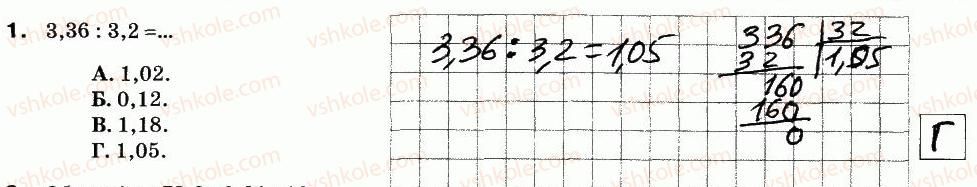 1. 3,36 : 3,2 =...
А. 1,02.
Б. 0,12.
В. 1,18.
Г. 1,05.
3,36 : 3,2 = 1,05
336 | 32
32 | 1,05
160
160
0
Г
vshkole.com